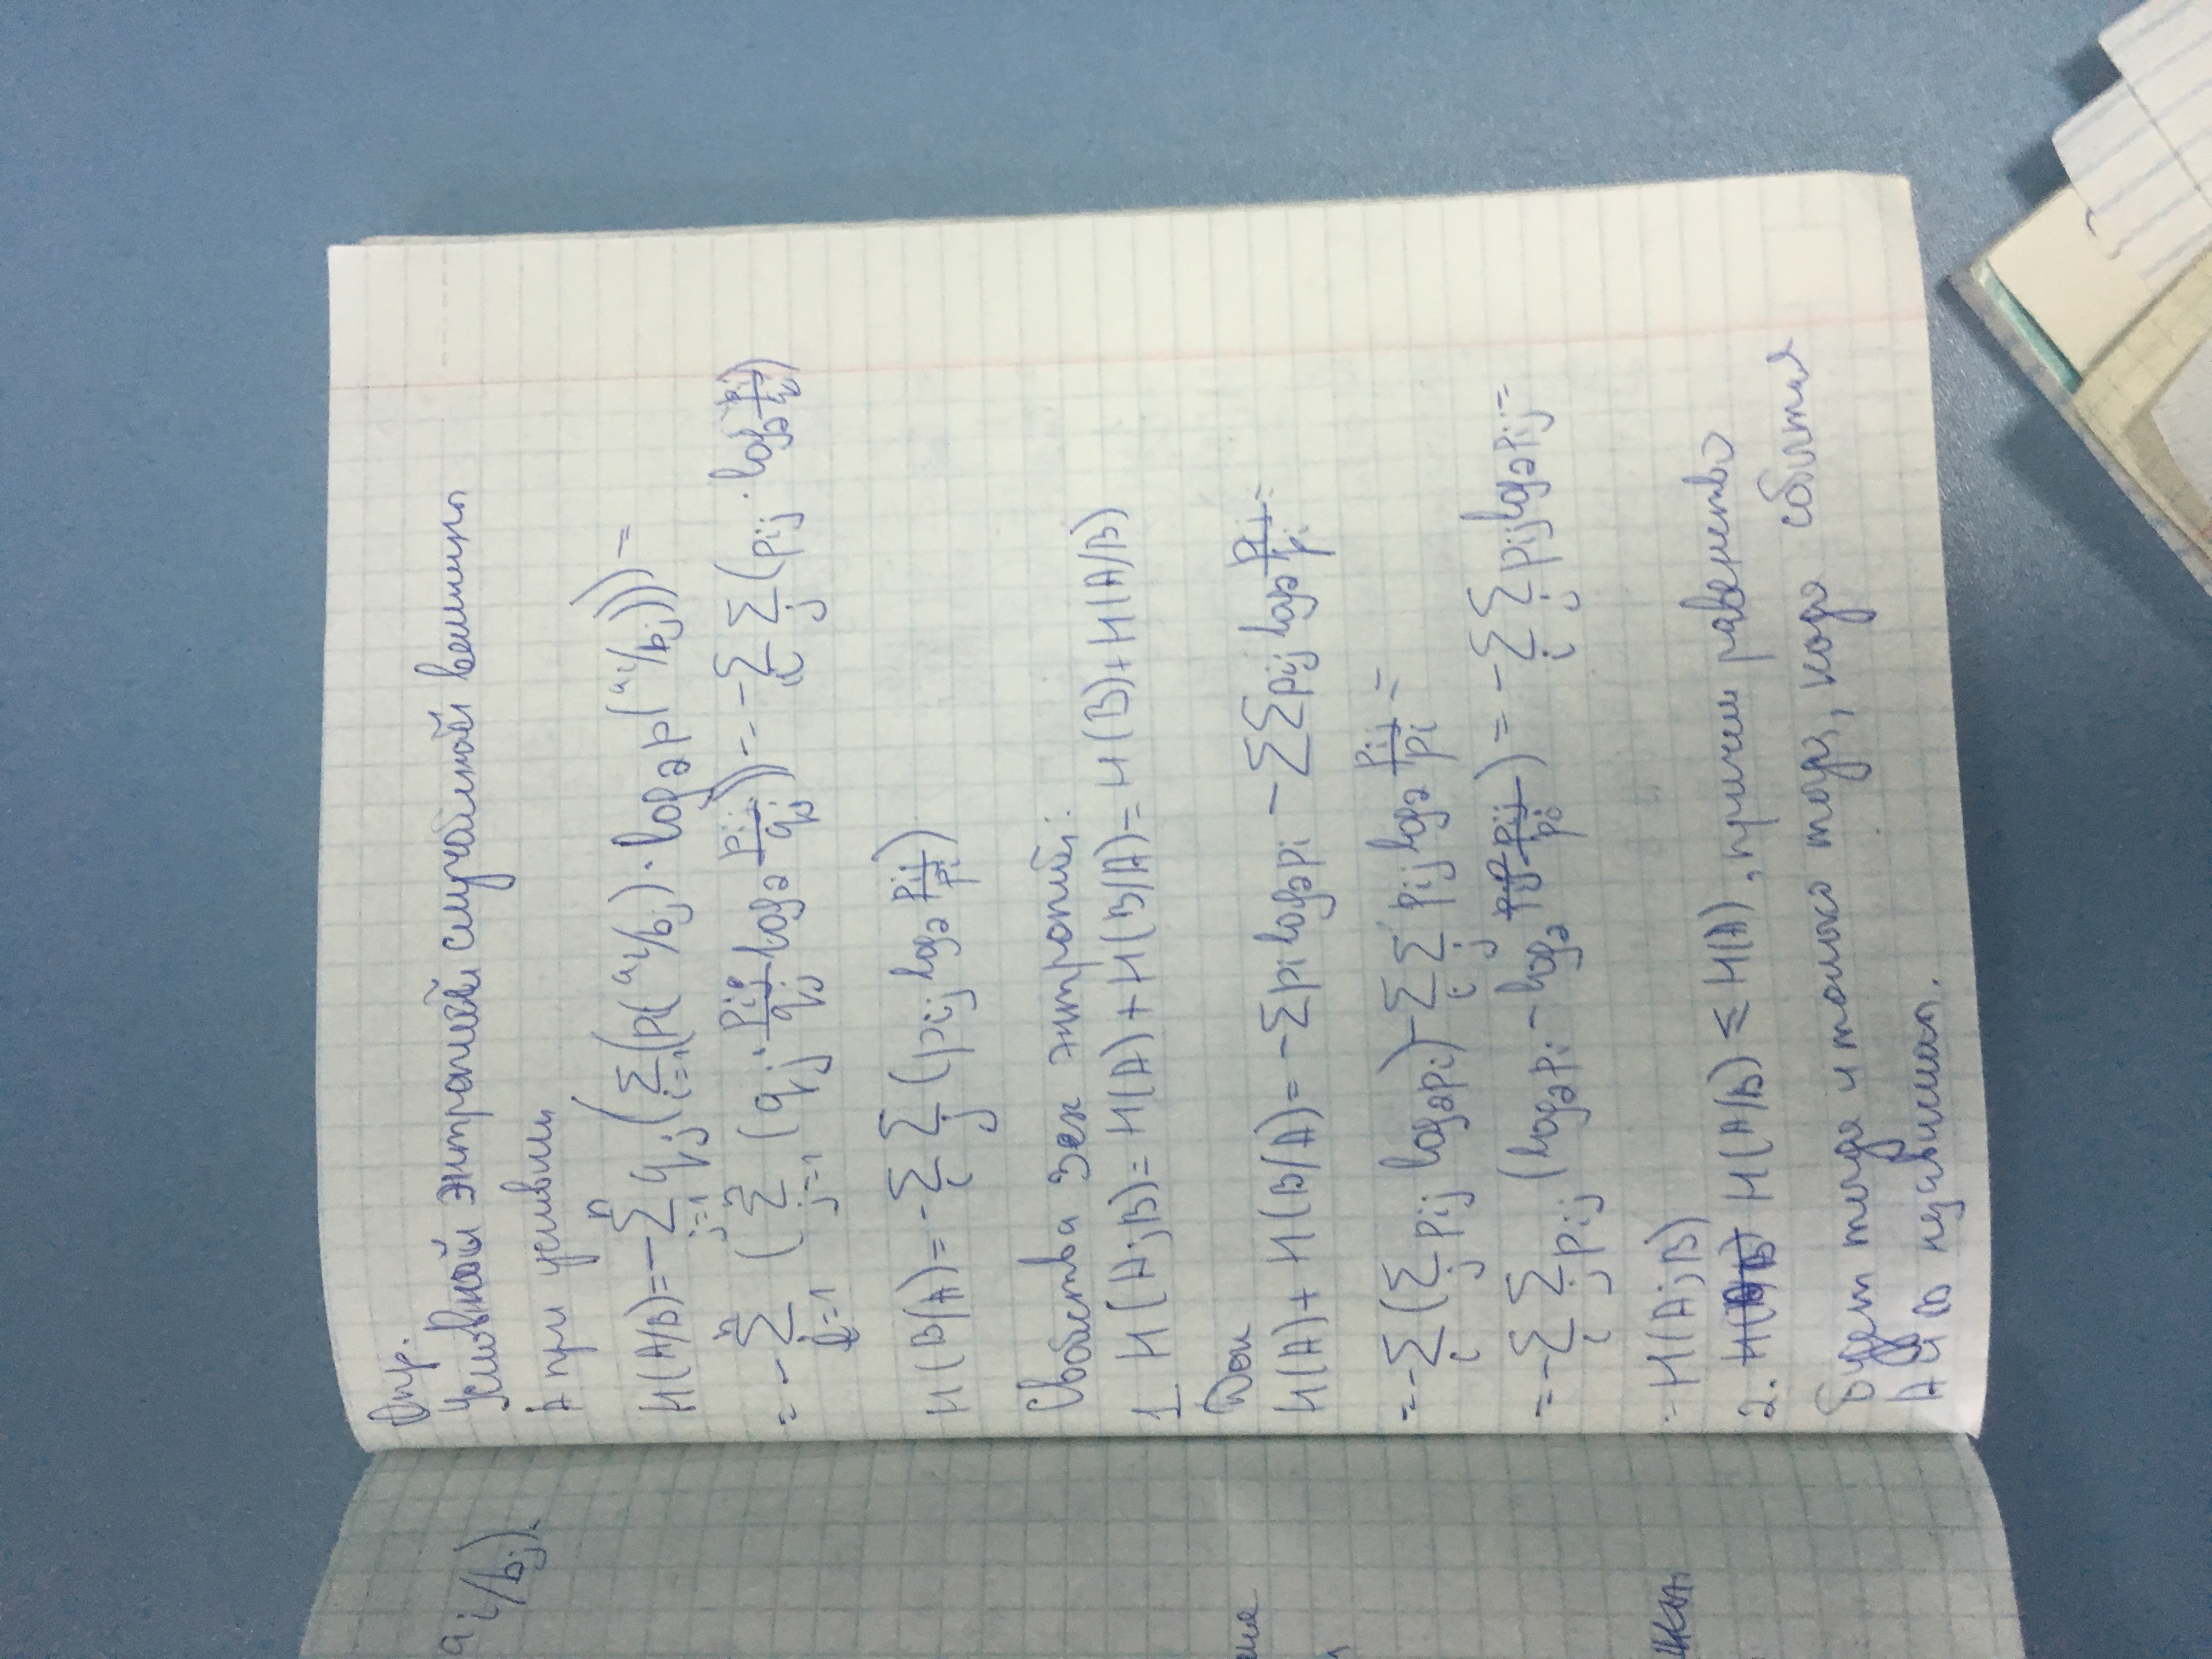 a i/bj).
Опр.
Условной энтропией случайной величины
A при условии
H(A/B)=-∑ⁿj=1 qj(∑i=1(p(ai/bj)·log₂p(ai/bj)))=
=-∑ⁿi=1 (∑ⁿj=1 (qj·pij/qj log₂ pij/qj))=-∑i ∑j(pij·log₂ pij/qj)
H(B/A)=-∑i ∑j (pij log₂ pij/pi)
Свойства энтропий:
1 H(A;B)=H(A)+H(B/A)=H(B)+H(A/B)
Док
H(A)+H(B/A)=-∑pi log₂pi -∑∑pij log₂ pij/pi=
=-∑i(∑j pij log₂pi)-∑i ∑j pij log₂ pij/pi=
=-∑i ∑j pij (log₂pi-log₂ pij/pi)=-∑i ∑j pij log₂pij=
=H(A;B)
2. H(A/B)≤H(A), причем равенство
будет тогда и только тогда, когда события
A и B независимы.